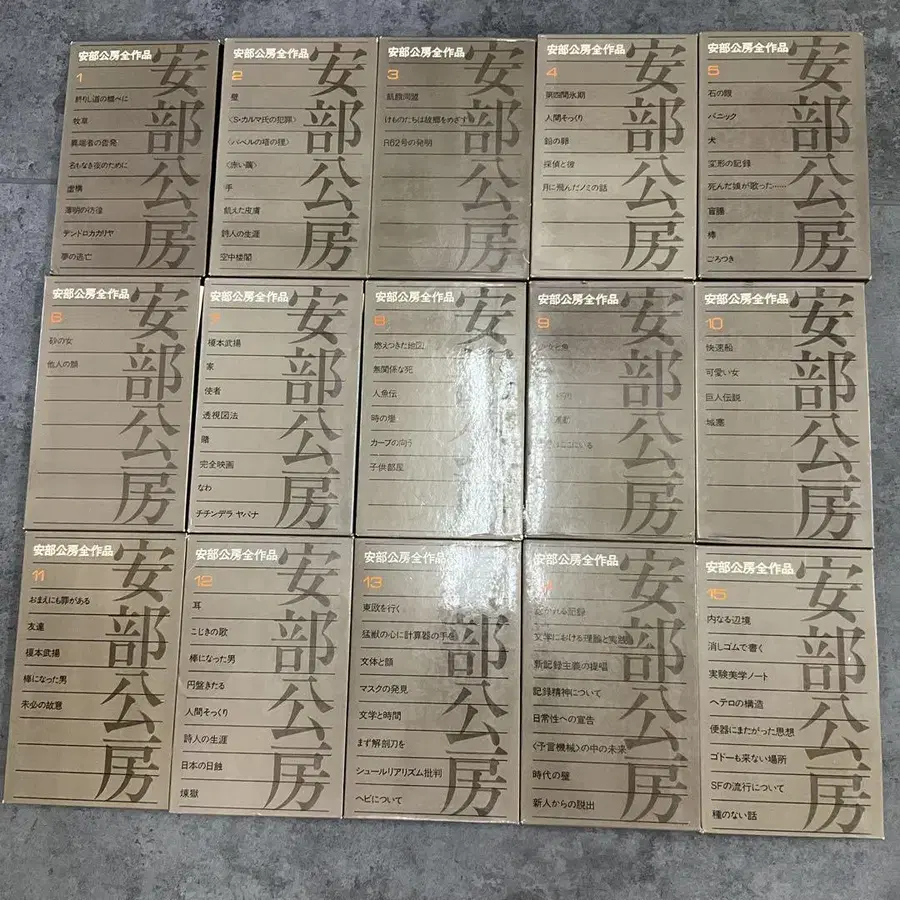 安部公房全作品
安部公房
1
終りし道の標べに
牧草
異端者の告発
名もなき夜のために
虚構
薄明の彷徨
デンドロカカリヤ
夢の逃亡
安部公房全作品
安部公房
2
壁
〈S・カルマ氏の犯罪〉
〈バベルの塔の狸〉
〈赤い繭〉
手
飢えた皮膚
詩人の生涯
空中楼閣
安部公房全作品
安部公房
3
飢餓同盟
けものたちは故郷をめざす
R62号の発明
安部公房全作品
安部公房
4
第四間氷期
人間そっくり
鉛の卵
探偵と彼
月に飛んだノミの話
安部公房全作品
安部公房
5
石の眼
パニック
犬
変形の記録
死んだ娘が歌った……
盲腸
棒
ごろつき
安部公房全作品
安部公房
6
砂の女
他人の顔
安部公房全作品
安部公房
7
榎本武揚
家
使者
透視図法
賭
完全映画
なわ
チチンデラ ヤパナ
安部公房全作品
安部公房
8
燃えつきた地図
無関係な死
人魚伝
時の壁
カーブの向う
子供部屋
安部公房全作品
安部公房
9
女と魚
ここにいる
安部公房全作品
安部公房
10
快速船
可愛い女
巨人伝説
城塞
安部公房全作品
安部公房
11
おまえにも罪がある
友達
榎本武揚
棒になった男
未必の故意
安部公房全作品
安部公房
12
耳
こじきの歌
棒になった男
円盤きたる
人間そっくり
詩人の生涯
日本の日蝕
煉獄
安部公房全作品
安部公房
13
東欧を行く
猛獣の心に計算器の手を
文体と顔
マスクの発見
文学と時間
まず解剖刀を
シュールリアリズム批判
ヘビについて
安部公房全作品
安部公房
裁かれる記録
文学における理論と実践
新記録主義の提唱
記録精神について
日常性への宣告
〈予言機械〉の中の未来
時代の壁
新人からの脱出
安部公房全作品
安部公房
15
内なる辺境
消しゴムで書く
実験美学ノート
ヘテロの構造
便器にまたがった思想
ゴドーも来ない場所
SFの流行について
種のない話